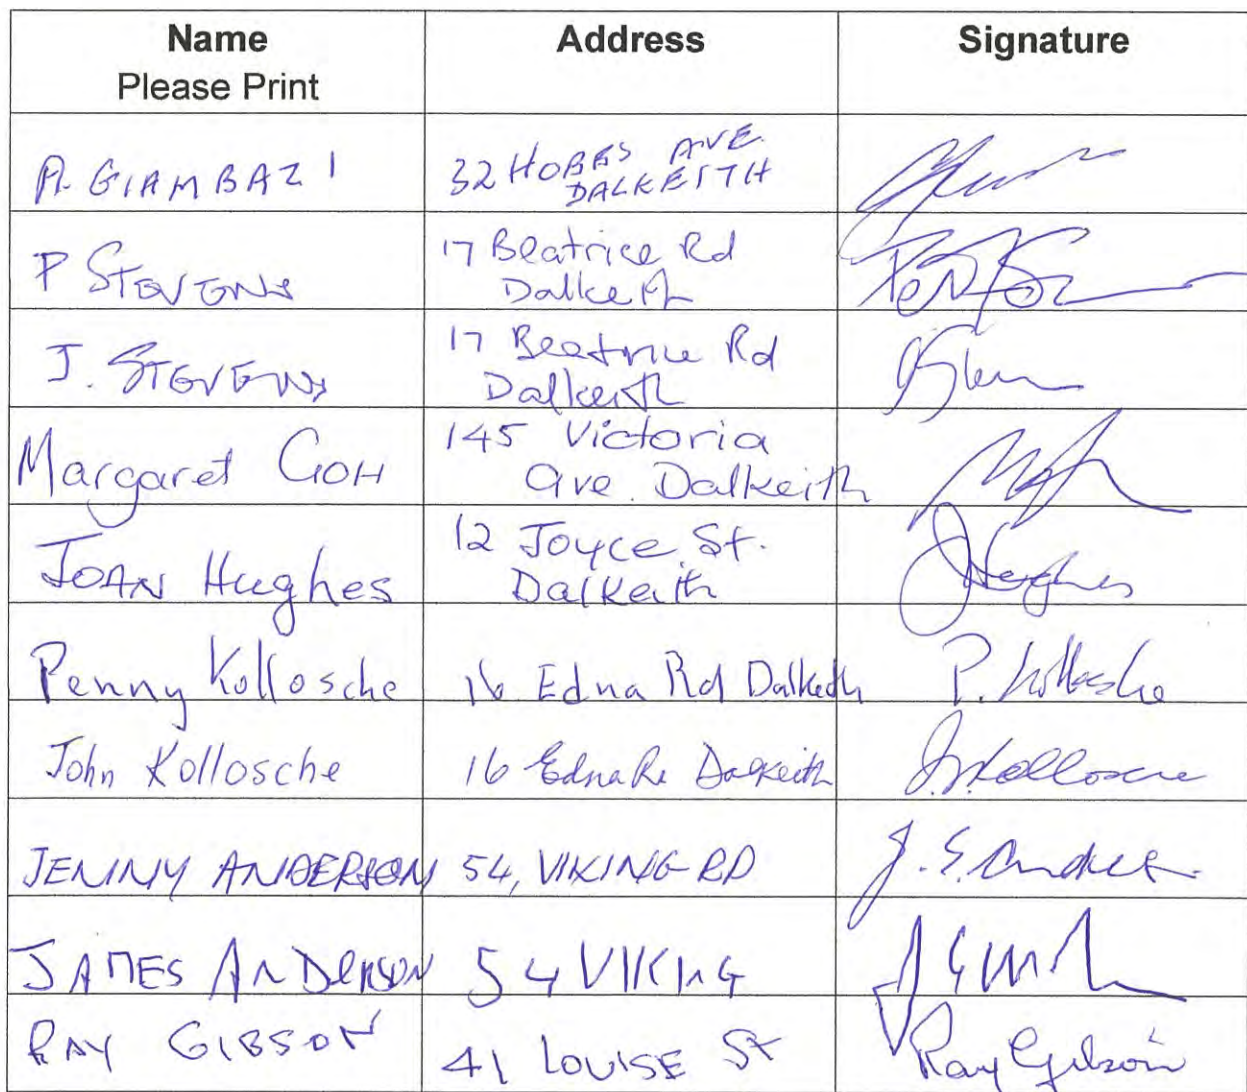 Name Address Signature
Please Print
A. GIAMBAZI 32 HOBBS AVE
DALKEITH
P STEVENS 17 Beatrice Rd
Dalkeith
J. STEVENS 17 Beatrice Rd
Dalkeith
Margaret GOH 145 Victoria
ave. Dalkeith
JOAN Hughes 12 Joyce St. JHughes
Dalkeith
Penny Kollosche 16 Edna Rd Dalkeith P. Kollosche
John Kollosche 16 Edna Rd Dalkeith J. Kollosche
JENNY ANDERSON 54, VIKING RD
JAMES ANDERSON 54 VIKING
RAY GIBSON 41 LOUISE St Ray Gibson